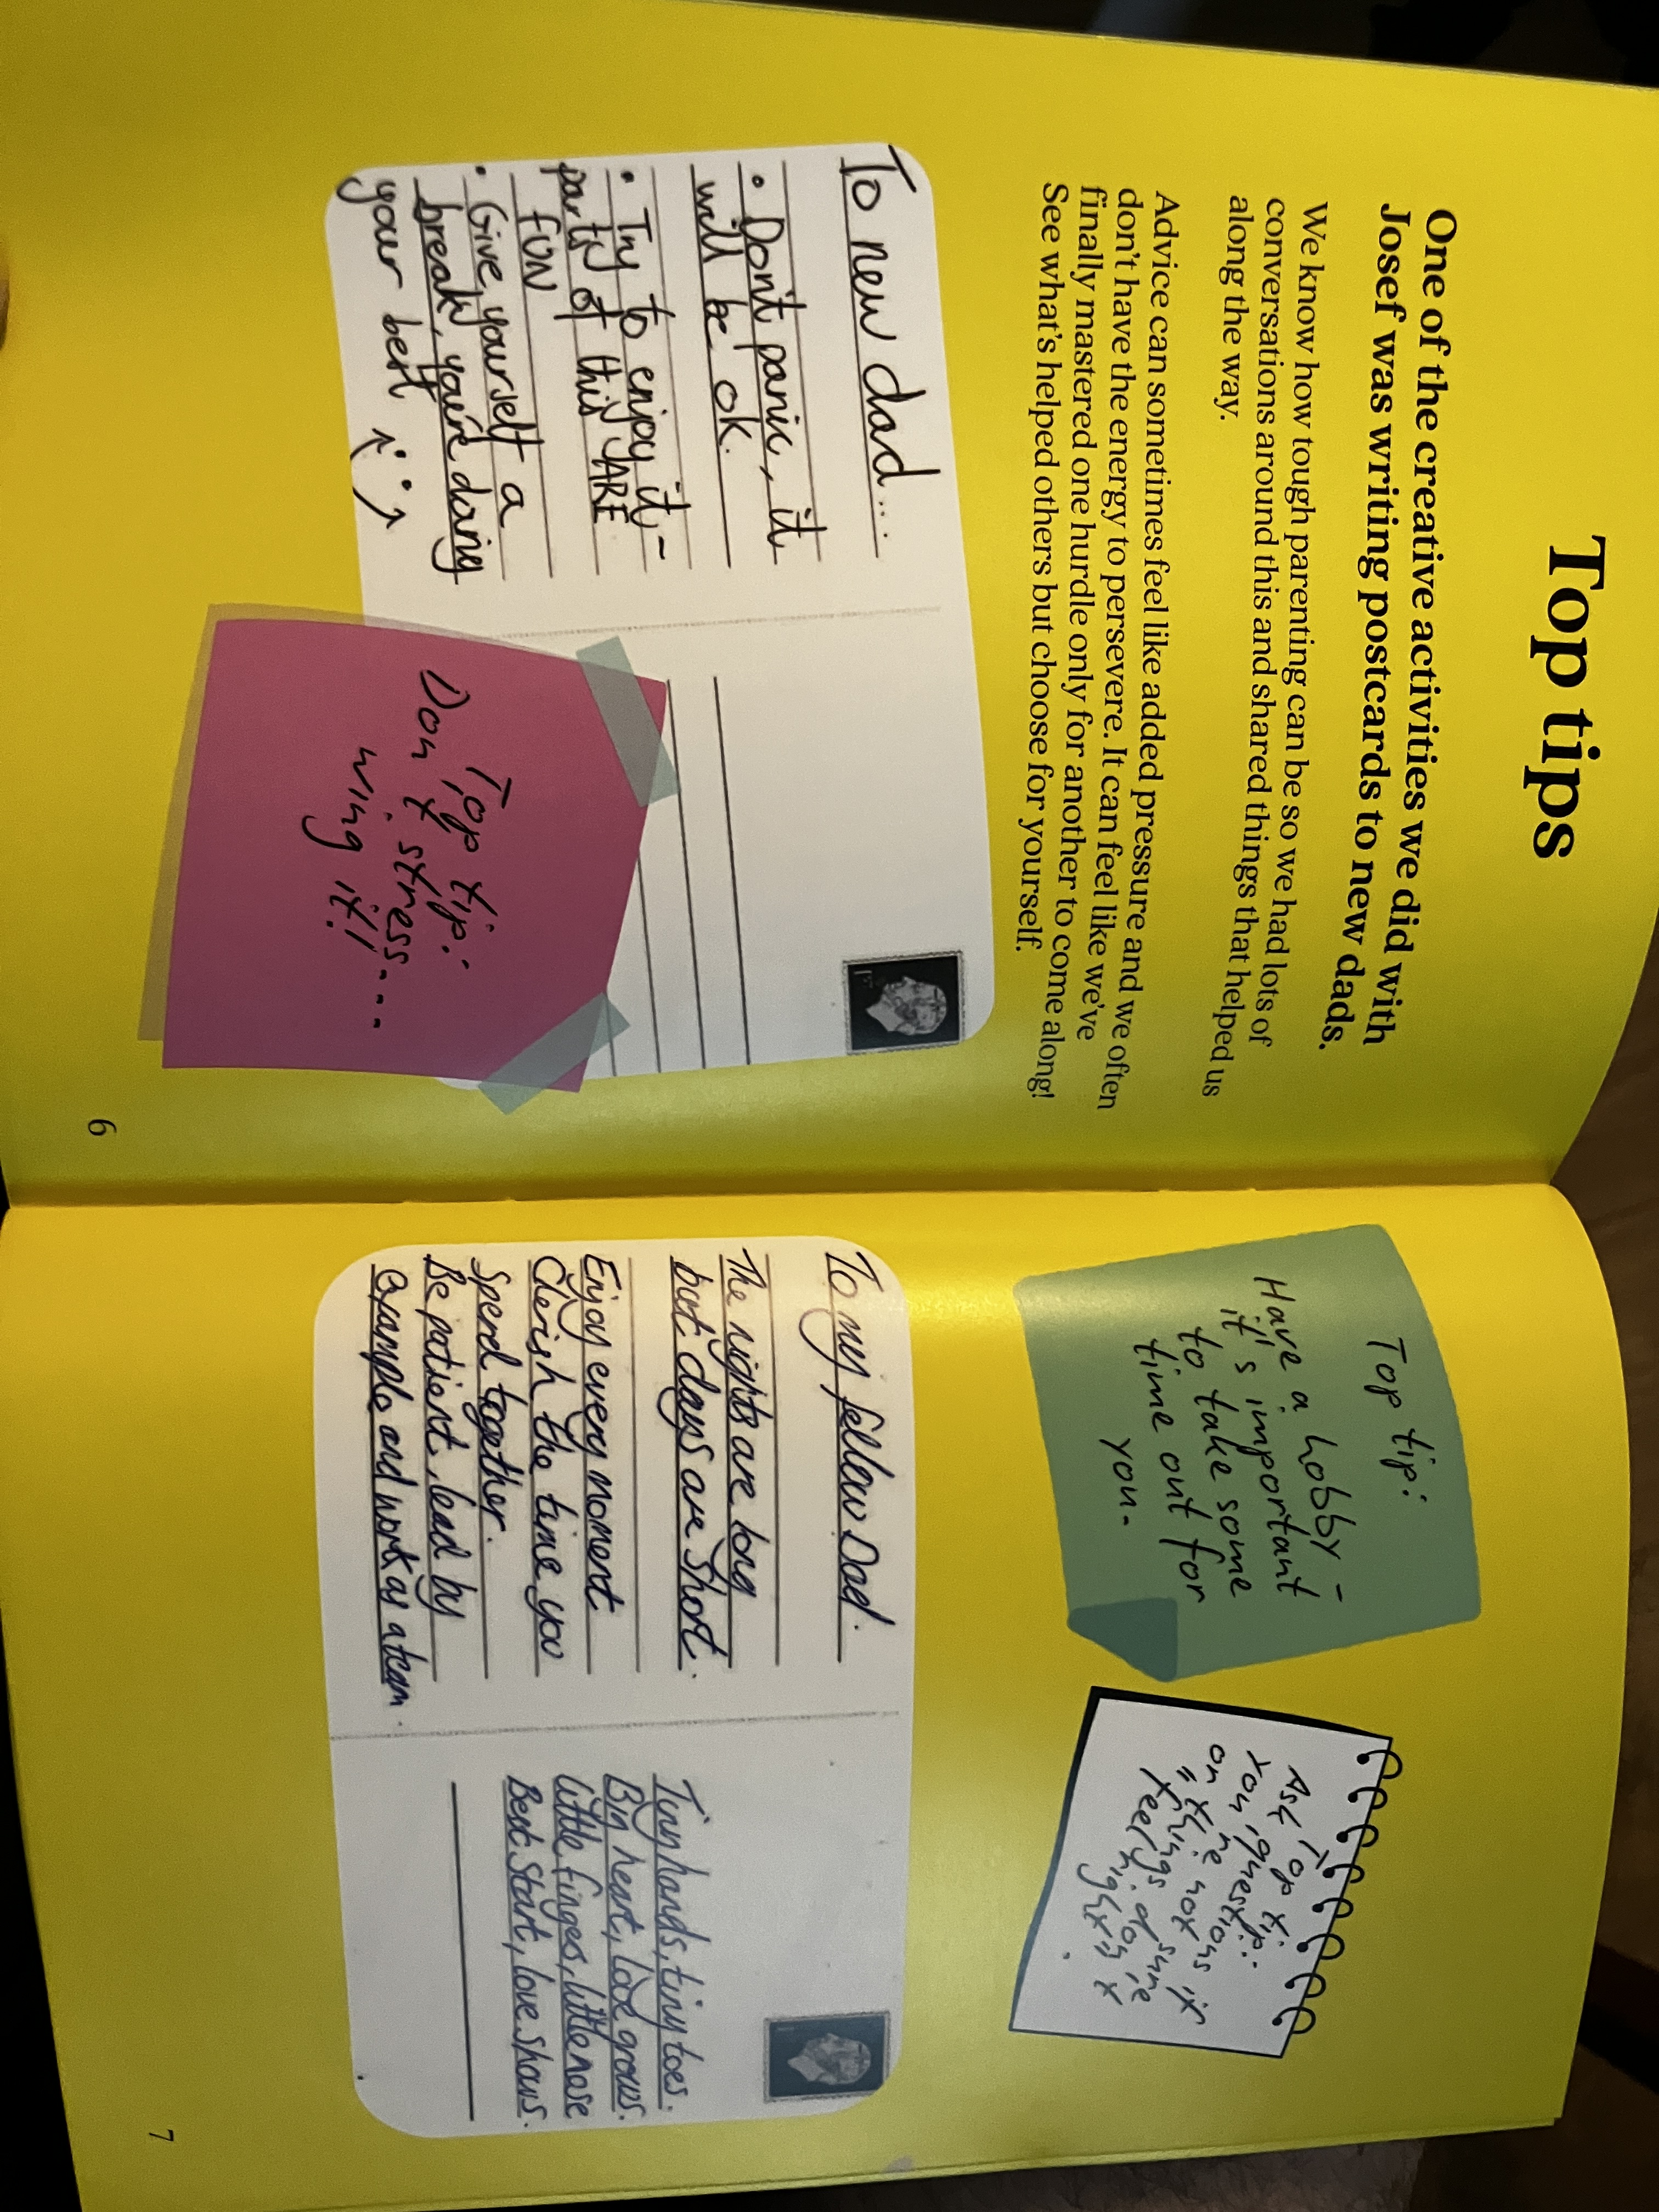 Top tips
One of the creative activities we did with
Josef was writing postcards to new dads.
We know how tough parenting can be so we had lots of
conversations around this and shared things that helped us
along the way.
Advice can sometimes feel like added pressure and we often
don't have the energy to persevere. It can feel like we've
finally mastered one hurdle only for another to come along!
See what's helped others but choose for yourself.
To new dad....
• Don't panic, it
will be ok.
• Try to enjoy it-
parts of this ARE
FUN
• Give yourself a
break, you're doing
your best
1ST
Top tip:
Don't stress....
wing it!
6
Top tip:
Have a hobby -
it's important
to take some
time out for
you.
Top tip:
Ask questions if
you're not sure
on things
feel right".
To my fellow Dad.
The nights are long
but days are short.
Enjoy every moment
Cherish the time you
Spend together.
Be patient, lead by
example and work as a team.
Tiny hands, tiny toes.
Big heart, love grows.
Little fingers, little nose
Best start, love shows.
7